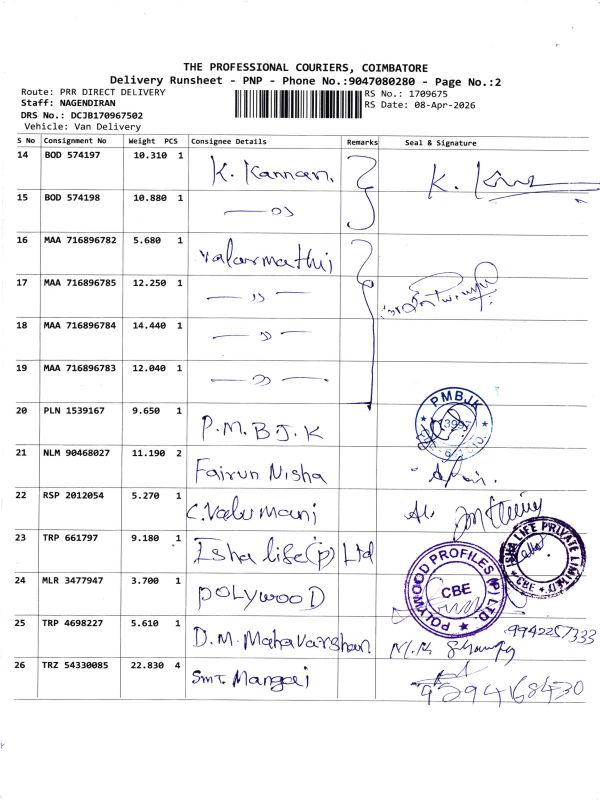 THE PROFESSIONAL COURIERS, COIMBATORE
Delivery Runsheet - PNP - Phone No.:9047080280 - Page No.:2
Route: PRR DIRECT DELIVERY
RS No.: 1709675
Staff: NAGENDIRAN
RS Date: 08-Apr-2026
DRS No.: DCJB170967502
Vehicle: Van Delivery
S No Consignment No Weight PCS Consignee Details Remarks Seal & Signature
14 BOD 574197 10.310 1 K. Kannan. K.
15 BOD 574198 10.880 1 — ” —
16 MAA 716896782 5.680 1 Valarmathi
17 MAA 716896785 12.250 1 — ” —
18 MAA 716896784 14.440 1 — ” —
19 MAA 716896783 12.040 1 — ” —
20 PLN 1539167 9.650 1 P.M.B.J.K PMBJK
21 NLM 90468027 11.190 2 Fairun Nisha
22 RSP 2012054 5.270 1 C.Valumani
23 TRP 661797 9.180 1 Isha life (p) Ltd ISHA LIFE PRIVATE LIMITED CBE
24 MLR 3477947 3.700 1 POLYWOOD POLYWOOD PROFILES (P) LTD. CBE
25 TRP 4698227 5.610 1 D.M. Mahavarshan 9942257333
26 TRZ 54330085 22.830 4 Smt. Mangai